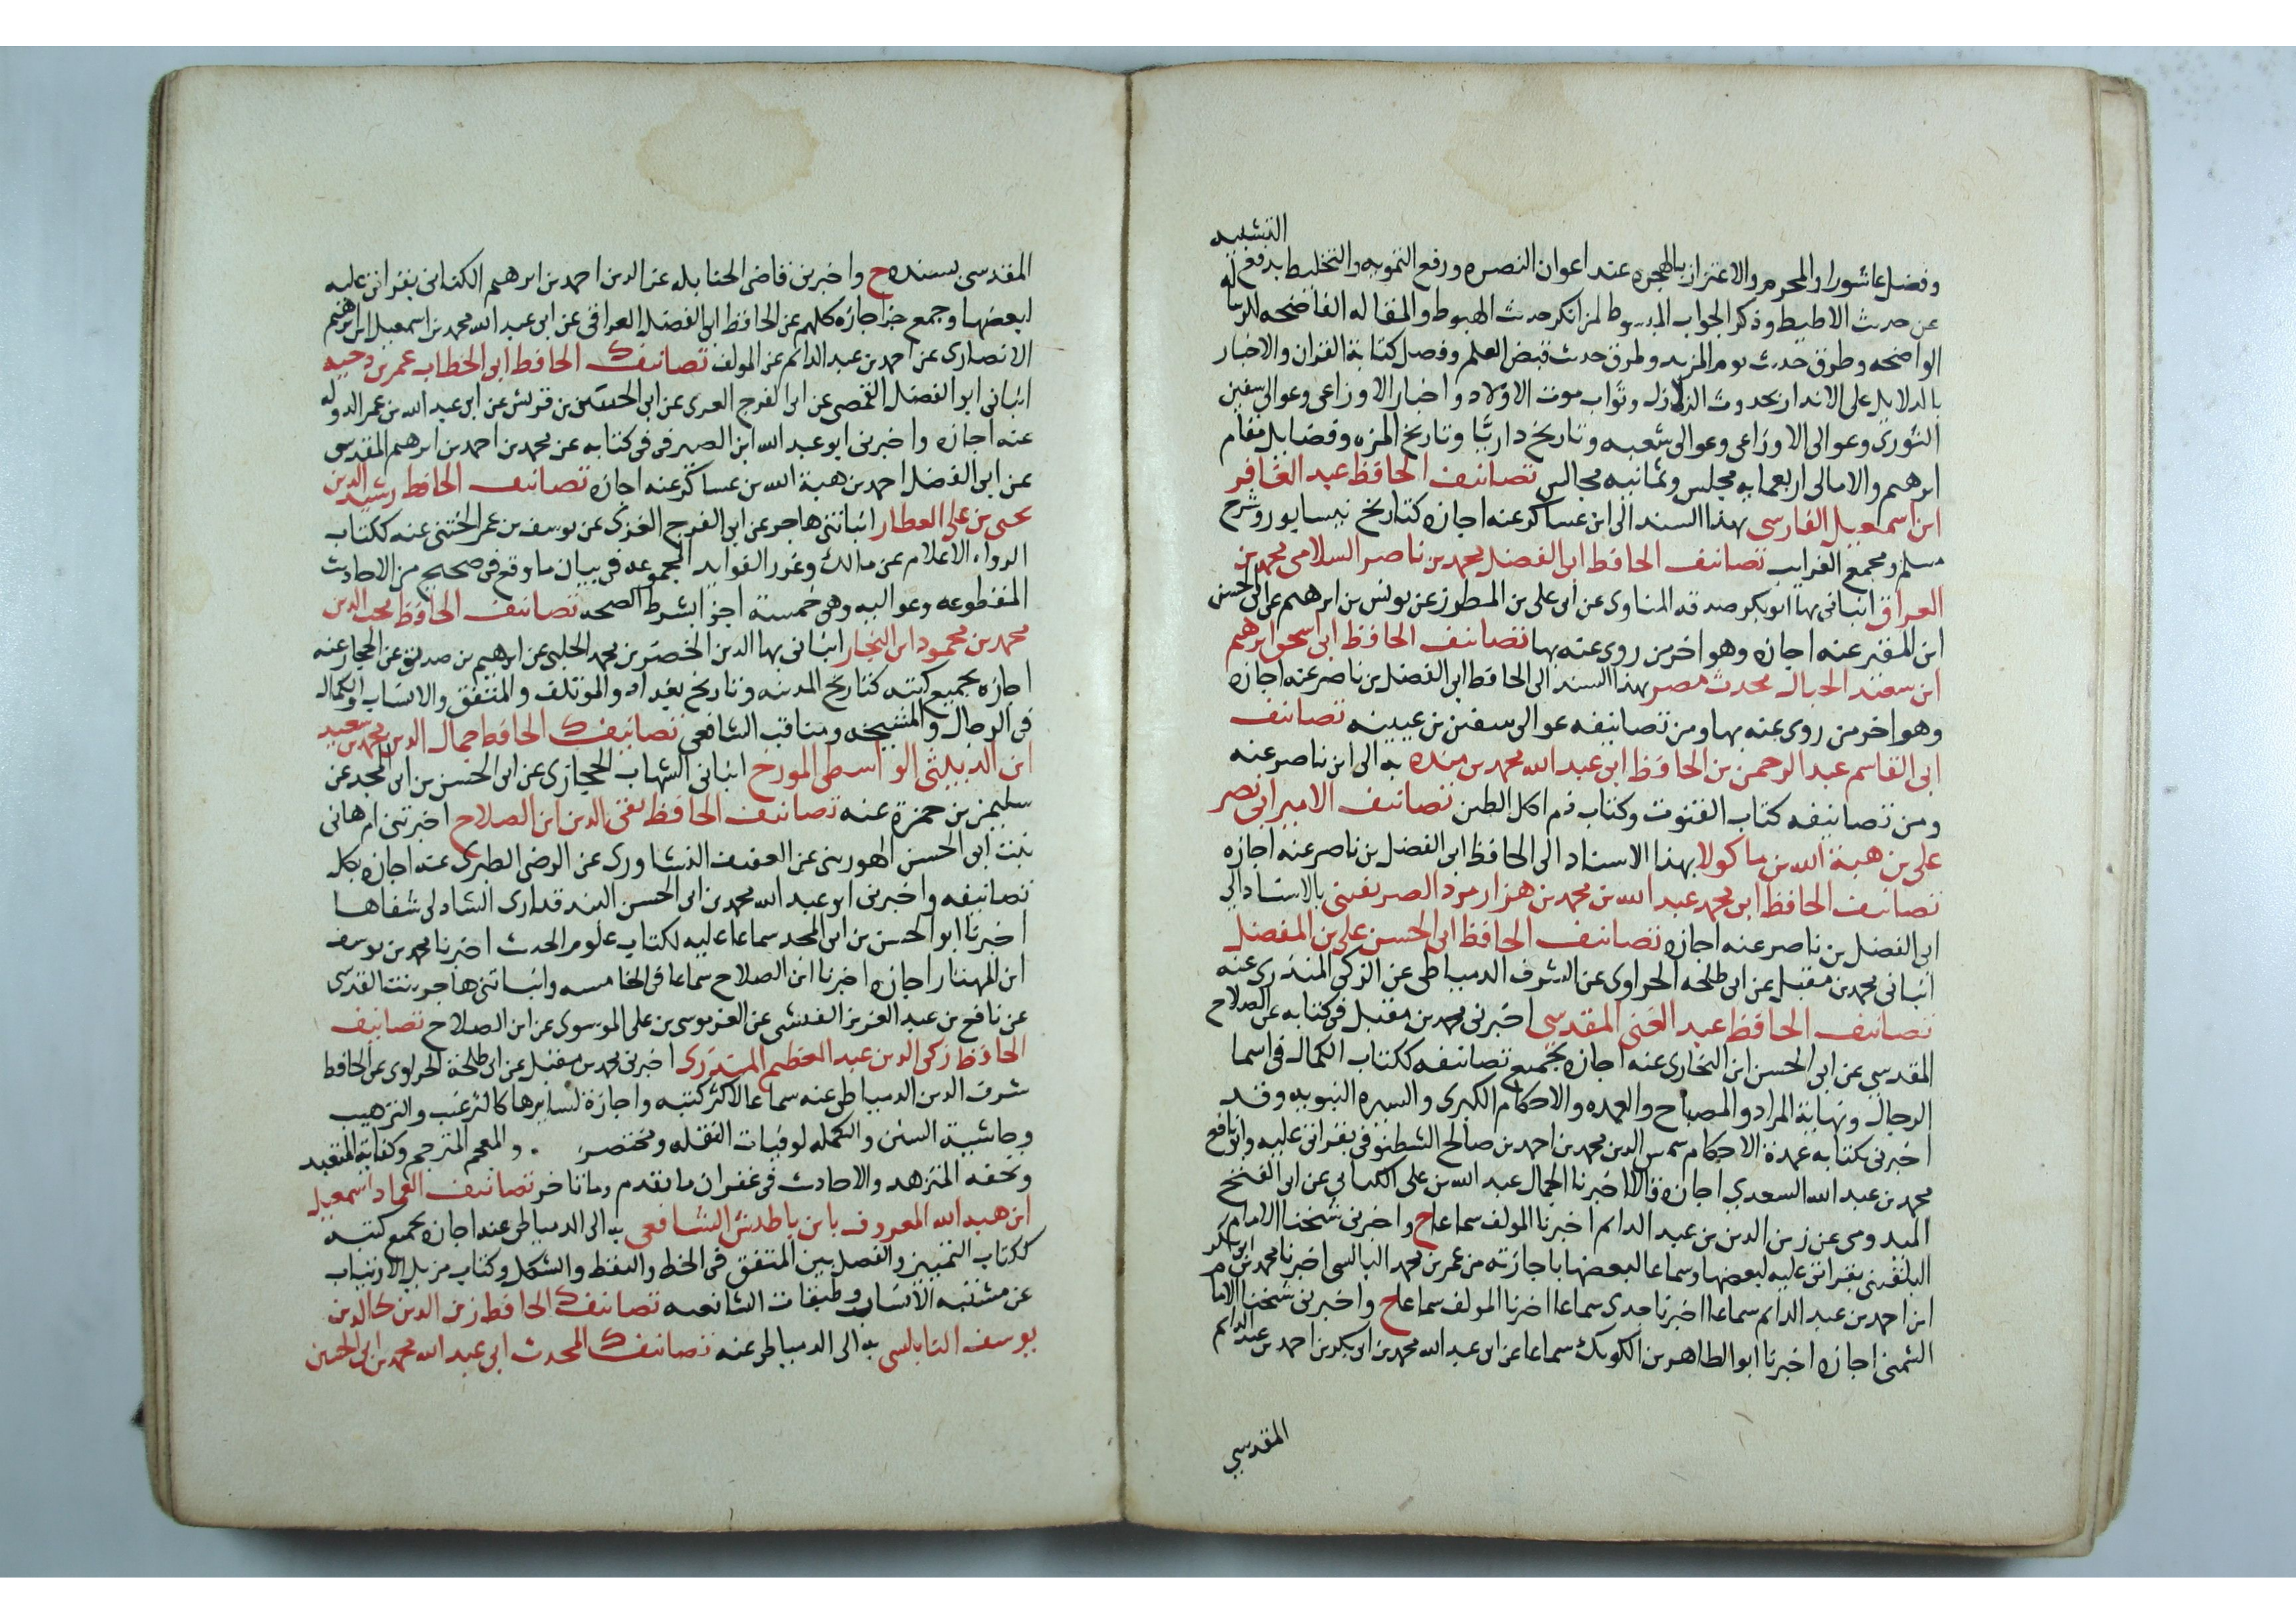 التشبيه
وفضل عاشورا والمحرم والاعتزاز بالهجره عند اعوان النصره ورفع التمويه والتخليط بدفع
عن حديث الاطيط وذكر الجواب المبسوط لمن انكر حديث الهبوط والمقاله الفاضحه للرساله
الواضحه وطرق حديث يوم المزيد وطرق حديث قبض العلم وفصل كتابة القران والاخبار
بالدلايل على الانذار بحدوث الزلازل وثواب موت الاولاد واخبار الاوزاعي وعوالي سفين
الثوري وعوالي الاوزاعي وعوالي شعبه وتاريخ داريا وتاريخ المزه وفضايل مقام
ابرهيم والامالي اربعمايه مجلس وثمانيه مجالس تصانيف الحافظ عبد الغافر
ابن اسمعيل الفارسي بهذا السند الى ابن عساكر عنه اجازه كتاريخ نيسابور وشرح
مسلم ومجمع الغرايب تصانيف الحافظ ابي الفضل محمد بن ناصر السلامي محدث
العراق انباني بها ابو بكر صدقه المناوي عن ابي علي بن المطرز عن يونس بن ابرهيم عن ابي الحسن
ابن المقير عنه اجازه وهو اخر من روى عنه بها تصانيف الحافظ ابي اسحق ابرهيم
ابن سعيد الحبال محدث مصر بهذا السند الى الحافظ ابي الفضل بن ناصر عنه اجازه
وهو اخر من روى عنه بها ومن تصانيفه عوالي سفين بن عيينه تصانيف
ابي القاسم عبد الرحمن بن الحافظ ابي عبد الله محمد بن منده به الى ابن ناصر عنه
ومن تصانيفه كتاب القنوت وكتاب ذم اكل الطين تصانيف الامير ابي نصر
علي بن هبة الله بن ماكولا بهذا الاسناد الى الحافظ ابي الفضل بن ناصر عنه اجازه
تصانيف الحافظ ابي محمد عبد الله بن محمد بن هزارمرد الصريفيني بالاسناد الى
ابي الفضل بن ناصر عنه اجازه تصانيف الحافظ ابي الحسن علي بن المفضل
انباني محمد بن مقبل عن ابي طلحه الحراوي عن الشرف الدمياطي عن الزكي المنذري عنه
تصانيف الحافظ عبد الغني المقدسي اخبرني محمد بن مقبل في كتابه عن الصلاح
المقدسي عن ابي الحسن ابن البخاري عنه اجازه بجميع تصانيفه ككتاب الكمال في اسما
الرجال ونهاية المراد والمصباح والعمده والاحكام الكبرى والسيره النبويه وقد
اخبرني بكتابه عمدة الاحكام شمس الدين محمد بن احمد بن صالح الشطنوفي بقراتي عليه وابو نافع
محمد بن عبد الله السعدي اجازه قالا اخبرنا الجمال عبد الله بن علي الكناني عن ابي الفتح
الميدومي عن زين الدين بن عبد الدائم اخبرنا المولف سماعا ح واخبرني شيخنا الامام
البلقيني بقراتي عليه لبعضها وسماعا لبعضها باجازته من عمر بن محمد البالسي اخبرنا محمد بن ابي بكر
ابن احمد بن عبد الدائم سماعا اخبرنا جدي سماعا اخبرنا المولف سماعا ح واخبرني شيخنا الامام
الشمني اجازه اخبرنا ابو الطاهر بن الكويك سماعا عن ابي عبد الله محمد بن ابي بكر بن احمد بن عبد الدائم
المقدسي
المقدسي بسنده ح واخبرني قاضي الحنابله عز الدين احمد بن ابرهيم الكناني بقراتي عليه
لبعضها وجمع جزا اجازه كلهم عن الحافظ ابي الفضل العراقي عن ابي عبد الله محمد بن اسمعيل ابن ابرهيم
الانصاري عن احمد بن عبد الدائم عن المولف تصانيف الحافظ ابي الخطاب عمر بن دحيه
انباني ابو الفضل القمصي عن ابي الفرج الغزي عن ابي الحسن بن قريش عن ابي عبد الله بن عمر الدوله
عنه اجازه واخبرني ابو عبد الله ابن الصيرفي في كتابه عن محمد بن احمد بن ابرهيم المقدسي
عن ابي الفضل احمد بن هبة الله بن عساكر عنه اجازه تصانيف الحافظ رشيد الدين
يحيى بن علي العطار انباتني هاجر عن ابي الفرج الغزي عن يوسف بن عمر الختني عنه ككتاب
الرواه الاعلام عن مالك وغرر الفوايد المجموعه في بيان ما وقع في صحيح من الاحاديث
المقطوعه وعواليه وهي خمسة اجزا بشرط الصحه تصانيف الحافظ محب الدين
محمد بن محمود ابن النجار انباني بها الدين الخضر بن محمد الحلبي عن ابرهيم بن صديق عن الحجار عنه
اجازه بجميع كتبه كتاريخ المدينه وتاريخ بغداد والموتلف والمتفق والانساب والكمال
في الرجال والمشيخه ومناقب الشافعي تصانيف الحافظ جمال الدين محمد بن سعيد
ابن الدبيثي الواسطي المورخ انباني الشهاب الحجازي عن ابي الحسن بن ابي المجد عن
سليمن بن حمزة عنه تصانيف الحافظ تقي الدين ابن الصلاح اخبرتني ام هاني
بنت ابي الحسن الهوريني عن العفيف النشاوري عن الرضي الطبري عنه اجازه بكل
تصانيفه واخبرني ابو عبد الله محمد بن ابي الحسن البندقداري الشاذلي شفاها
اخبرنا ابو الحسن بن ابي المجد سماعا عليه لكتاب علوم الحديث اخبرنا محمد بن يوسف
ابن المهتار اجازه اخبرنا ابن الصلاح سماعا في الخامسه وانباتني هاجر بنت القدسي
عن نافع بن عبد العزيز الفيشي عن العز موسى بن علي الموسوي عن ابن الصلاح تصانيف
الحافظ زكي الدين عبد العظيم المنذري اخبرني محمد بن مقبل عن ابي طلحة الحراوي عن الحافظ
شرف الدين الدمياطي عنه سماعا لاكثر كتبه واجازة لسايرها كالترغيب والترهيب
وحاشية السنن والتكمله لوفيات النقله ومختصر . والمعجم المترجم وكفاية المتعبد
وتحفه المتزهد والاحاديث في غفران ما تقدم وما تاخر تصانيف العماد اسمعيل
ابن هبه الله المعروف بابن باطيش الشافعي به الى الدمياطي عنه اجازه بجميع كتبه
ككتاب التمييز والفصل بين المتفق في الخط والنقط والشكل وكتاب مزيل الارتياب
عن مشتبه الانساب وطبقات الشافعيه تصانيف الحافظ زين الدين خالد بن
يوسف النابلسي به الى الدمياطي عنه تصانيف المحدث ابي عبد الله محمد بن ابي الحسين